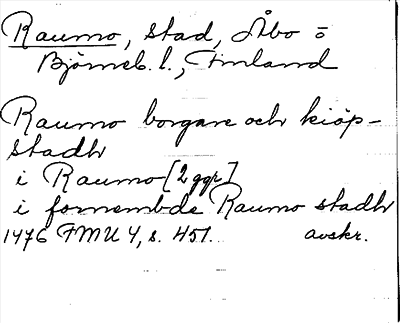 Raumo, stad, Åbo o
Björneb. l., Finland
Raumo borgare och kiöp-
stadh
i Raumo [2 ggr]
i fornembde Raumo stadh
1476 FMU 4, s. 451. avskr.